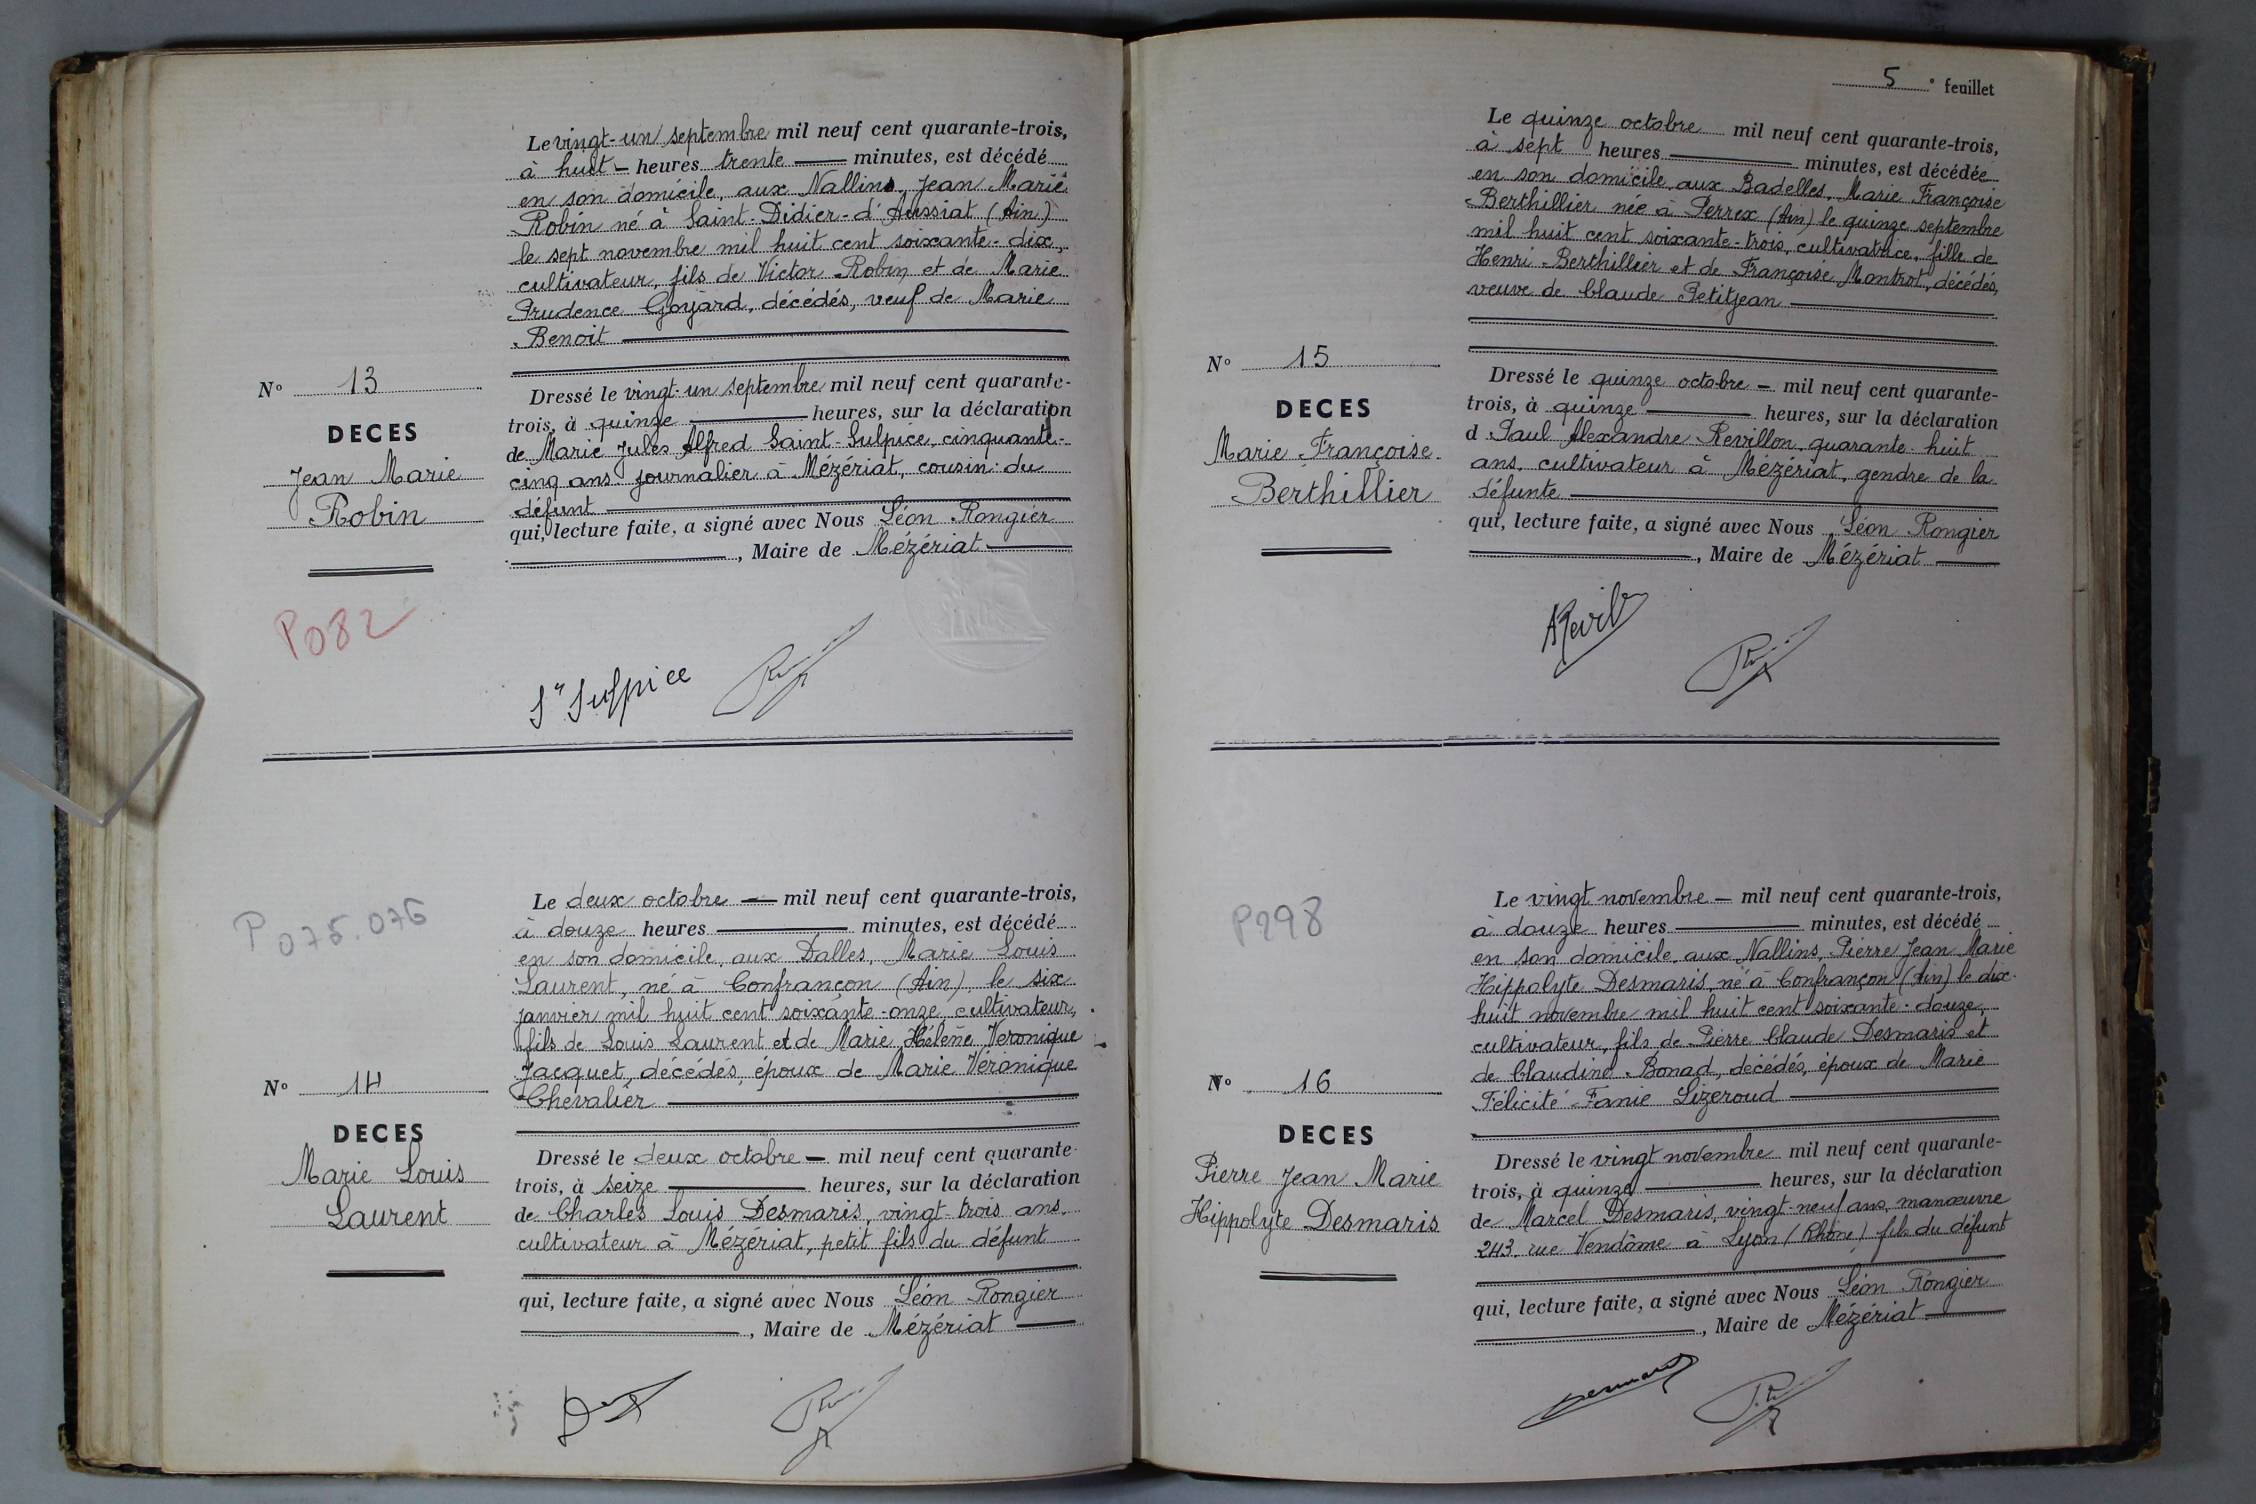 Le vingt-un septembre mil neuf cent quarante-trois,
à huit heures trente minutes, est décédé
en son domicile, aux Nallins, Jean Marie
Robin né à Saint-Didier-d'Aussiat (Ain)
le sept novembre mil huit cent soixante-dix,
cultivateur, fils de Victor Robin et de Marie
Prudence Goyard, décédés, veuf de Marie
Benoit
N° 13
DECES
Jean Marie
Robin
Dressé le vingt-un septembre mil neuf cent quarante-
trois, à quinze heures, sur la déclaration
de Marie Jules Alfred Saint-Sulpice, cinquante-
cinq ans, journalier à Mézériat, cousin du
défunt
qui, lecture faite, a signé avec Nous Léon Rongier
, Maire de Mézériat
P082
St Sulpice
P 075.076
Le deux octobre mil neuf cent quarante-trois,
à douze heures minutes, est décédé
en son domicile, aux Dalles, Marie Louis
Laurent, né à Confrançon (Ain), le six
janvier mil huit cent soixante-onze, cultivateur,
fils de Louis Laurent et de Marie Hélène Véronique
Jacquet, décédés, époux de Marie Véronique
Chevalier
N° 14
DECES
Marie Louis
Laurent
Dressé le deux octobre mil neuf cent quarante-
trois, à seize heures, sur la déclaration
de Charles Louis Desmaris, vingt-trois ans,
cultivateur à Mézériat, petit fils du défunt
qui, lecture faite, a signé avec Nous Léon Rongier
, Maire de Mézériat
5 ° feuillet
Le quinze octobre mil neuf cent quarante-trois,
à sept heures minutes, est décédée
en son domicile, aux Badelles, Marie Françoise
Berthillier née à Perrex (Ain) le quinze septembre
mil huit cent soixante-trois, cultivatrice, fille de
Henri Berthillier et de Françoise Montrot, décédés,
veuve de Claude Petitjean
N° 15
DECES
Marie Françoise
Berthillier
Dressé le quinze octobre mil neuf cent quarante-
trois, à quinze heures, sur la déclaration
d Paul Alexandre Revillon, quarante-huit
ans, cultivateur à Mézériat, gendre de la
défunte
qui, lecture faite, a signé avec Nous Léon Rongier
, Maire de Mézériat
P298
Le vingt novembre mil neuf cent quarante-trois,
à douze heures minutes, est décédé
en son domicile, aux Nallins, Pierre Jean Marie
Hippolyte Desmaris, né à Confrançon (Ain) le dix-
huit novembre mil huit cent soixante-douze,
cultivateur, fils de Pierre Claude Desmaris et
de Claudine Bonad, décédés, époux de Marie
Félicité Fanie Lizeroud
N° 16
DECES
Pierre Jean Marie
Hippolyte Desmaris
Dressé le vingt novembre mil neuf cent quarante-
trois, à quinze heures, sur la déclaration
de Marcel Desmaris, vingt-neuf ans, manœuvre
243, rue Vendôme à Lyon (Rhône) fils du défunt
qui, lecture faite, a signé avec Nous Léon Rongier
, Maire de Mézériat